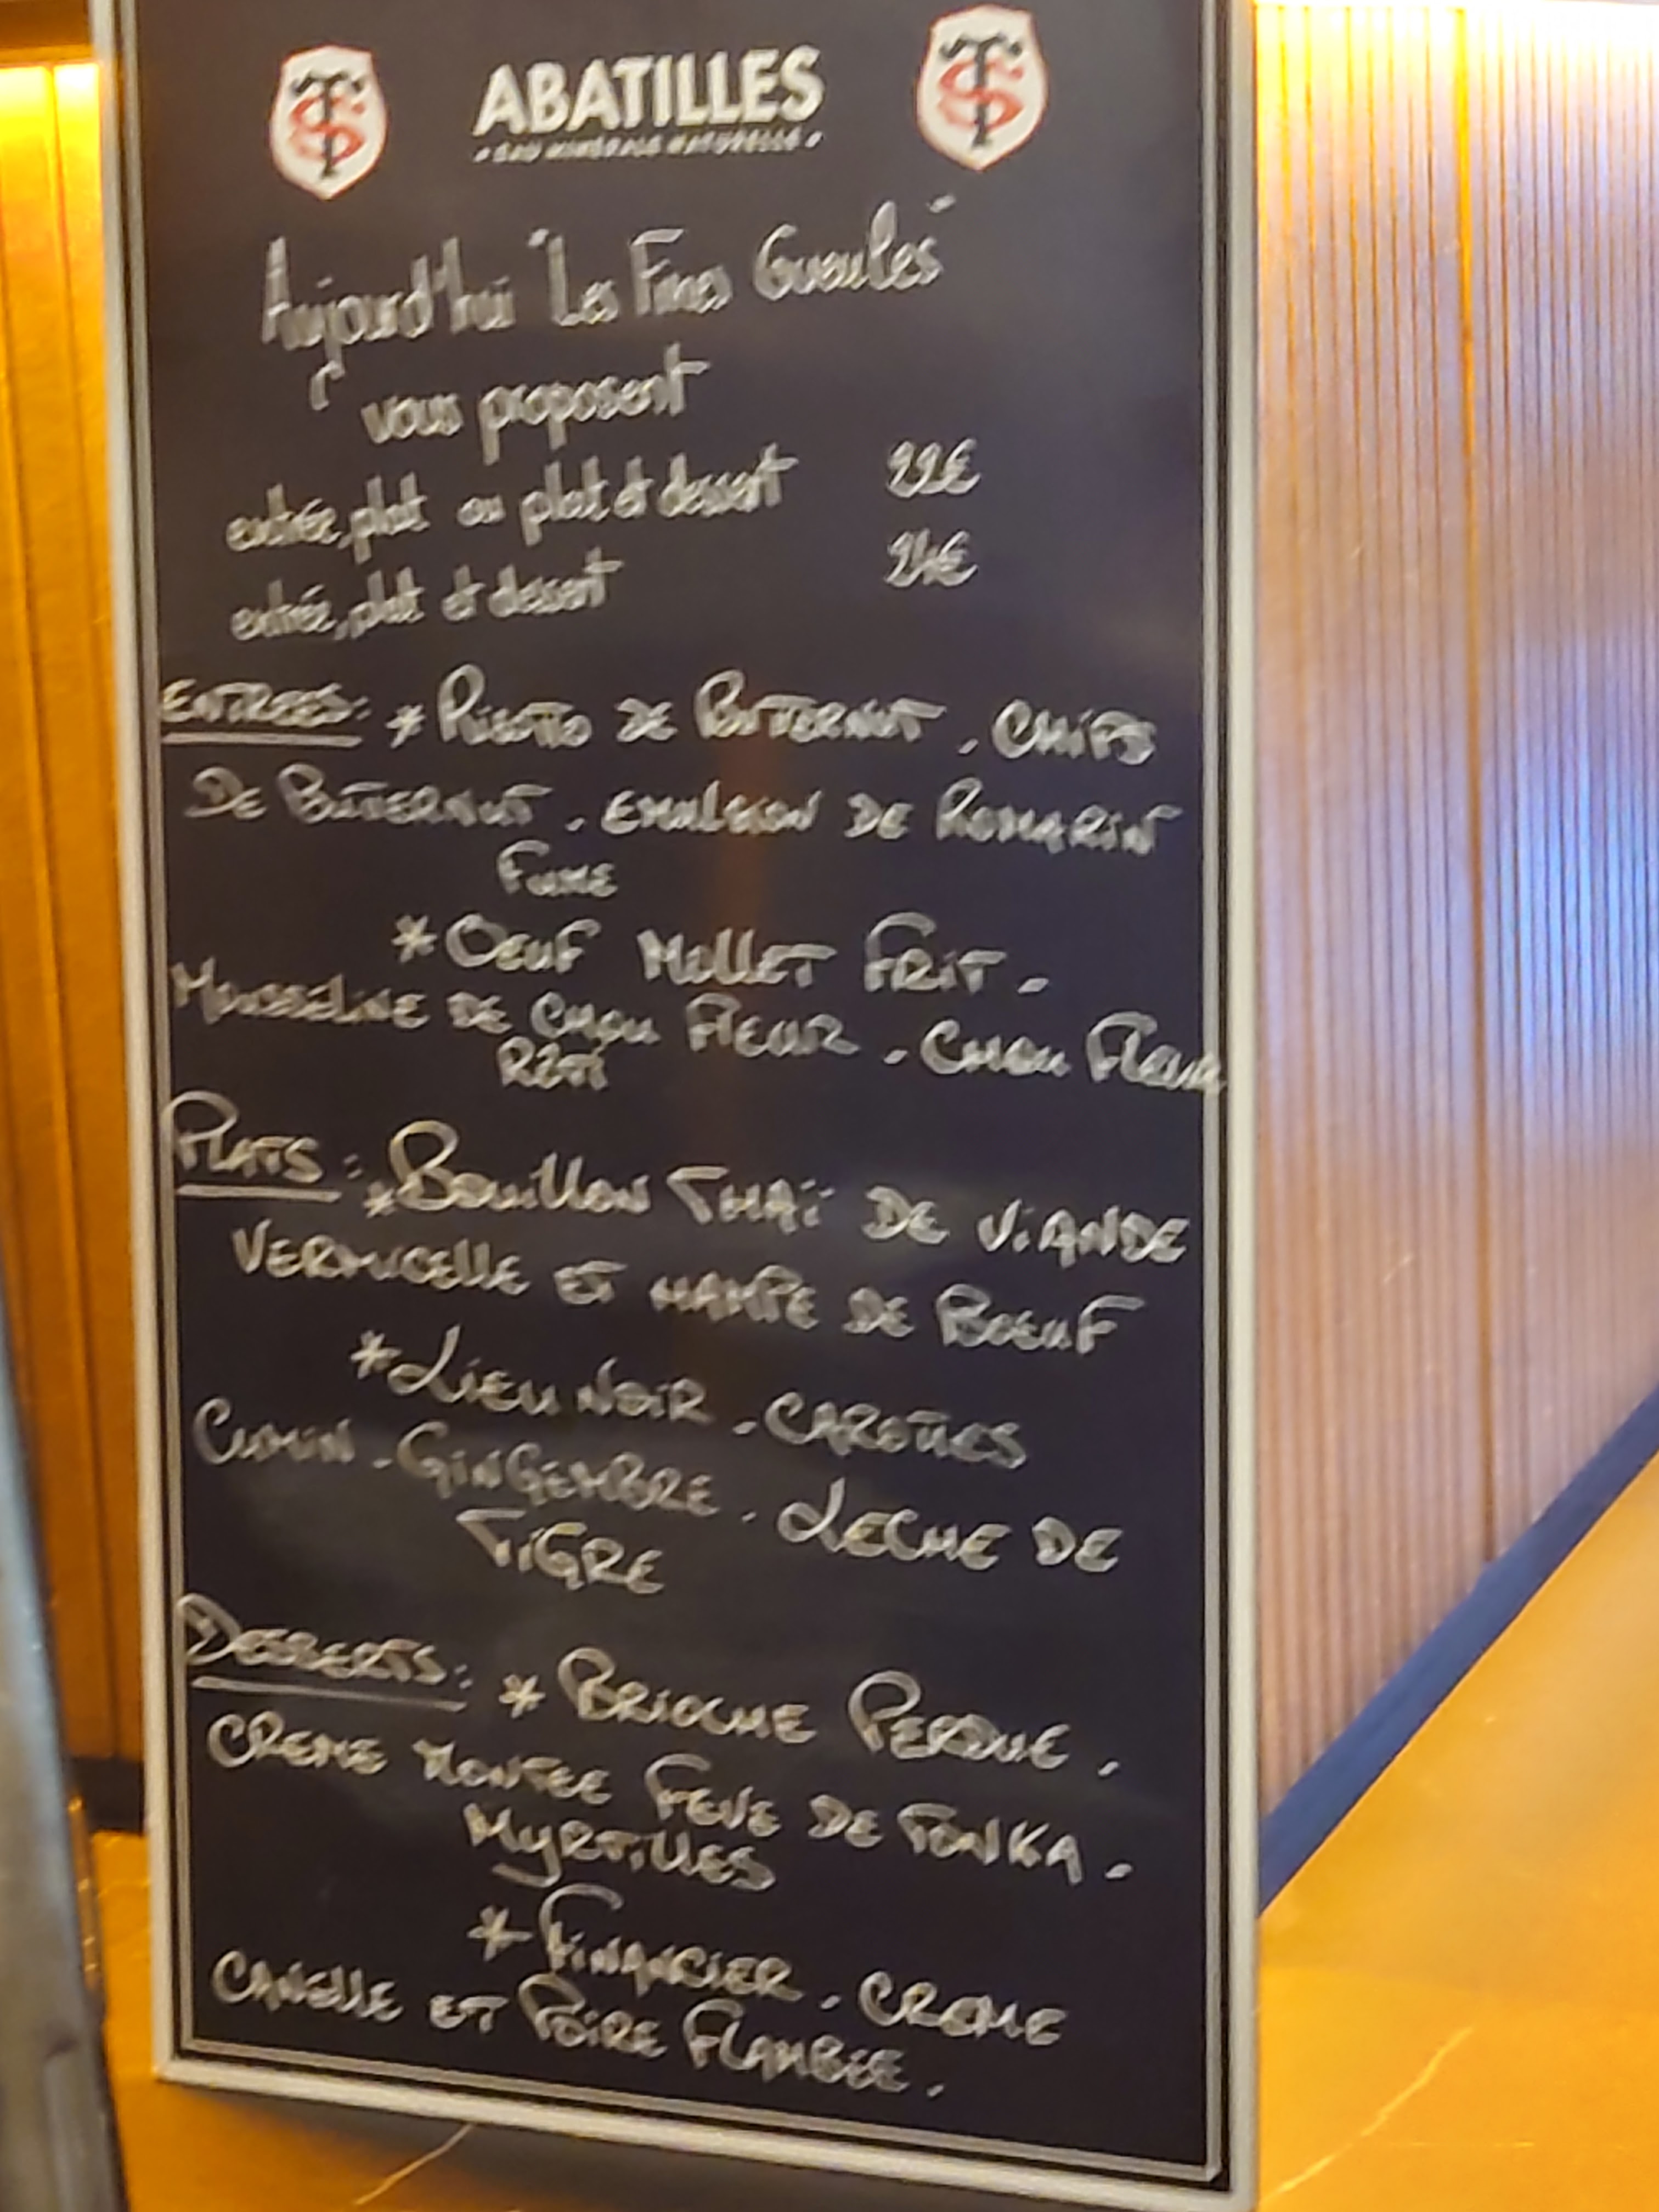 ABATILLES
• EAU MINÉRALE NATURELLE •
Aujourd'hui "Les Fines Gueules"
vous proposent
entrée, plat ou plat et dessert 22€
entrée, plat et dessert 24€
ENTREES: * RISOTTO DE BUTTERNUT. CHIPS
DE BUTERNUT. EMULSION DE ROMARIN
FUME
* OEUF MOLLET FRIT.
MOUSSELINE DE CHOU FLEUR. CHOU FLEUR
RÔTI
PLATS: * BOUILLON THAÏ DE VIANDE
VERMICELLE ET HAMPE DE BOEUF
* LIEU NOIR. CAROTTES
CUMIN. GINGEMBRE. LECHE DE
TIGRE
DESSERTS: * BRIOCHE PERDUE.
CREME MONTEE FEVE DE TONKA.
MYRTILLES
* FINANCIER. CREME
CANELLE ET POIRE FLAMBEE.